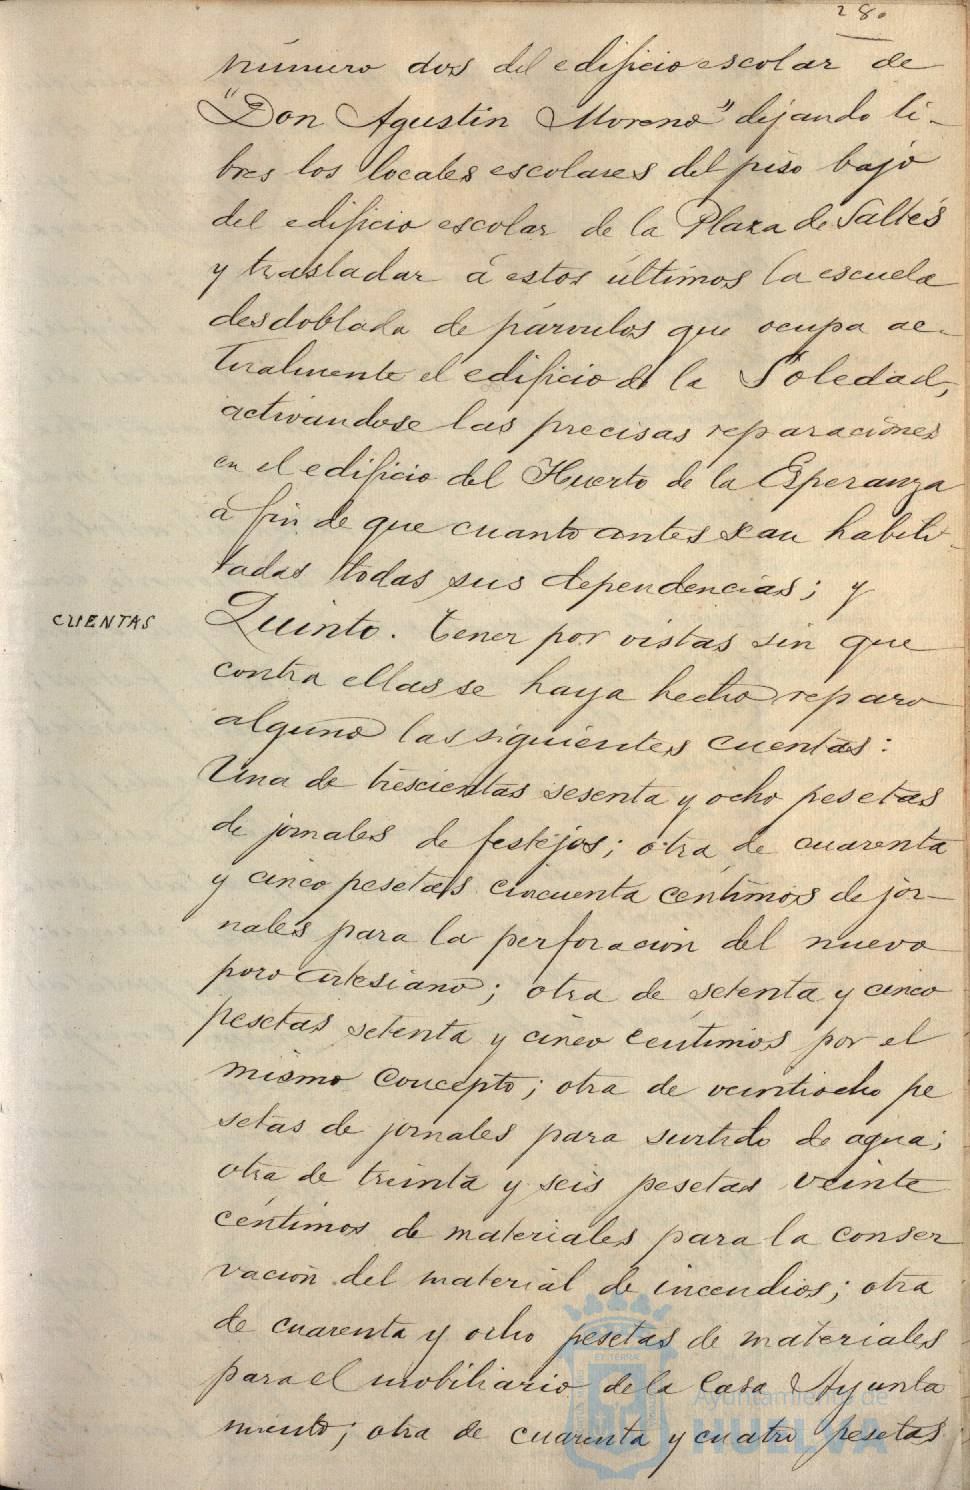 280
número dos del edificio escolar de
"Don Agustín Moreno" dejando li-
bres los locales escolares del piso bajo
del edificio escolar de la Plaza de Saltés
y trasladar á estos últimos la escuela
desdoblada de párvulos que ocupa ac-
tualmente el edificio de la Soledad,
activándose las precisas reparaciones
en el edificio del Huerto de la Esperanza
á fin de que cuanto antes sean habili-
tadas todas sus dependencias; y
CUENTAS
Quinto. Tener por vistas sin que
contra ellas se haya hecho reparo
alguno las siguientes cuentas:
Una de trescientas sesenta y ocho pesetas
de jornales de festejos; otra de cuarenta
y cinco pesetas cincuenta céntimos de jor-
nales para la perforación del nuevo
pozo artesiano; otra de setenta y cinco
pesetas setenta y cinco céntimos por el
mismo concepto; otra de veintiocho pe
setas de jornales para surtido de agua;
otra de treinta y seis pesetas veinte
céntimos de materiales para la conser
vación del material de incendios; otra
de cuarenta y ocho pesetas de materiales
para el mobiliario de la Casa Ayunta
miento; otra de cuarenta y cuatro pesetas
Ayuntamiento de
HUELVA